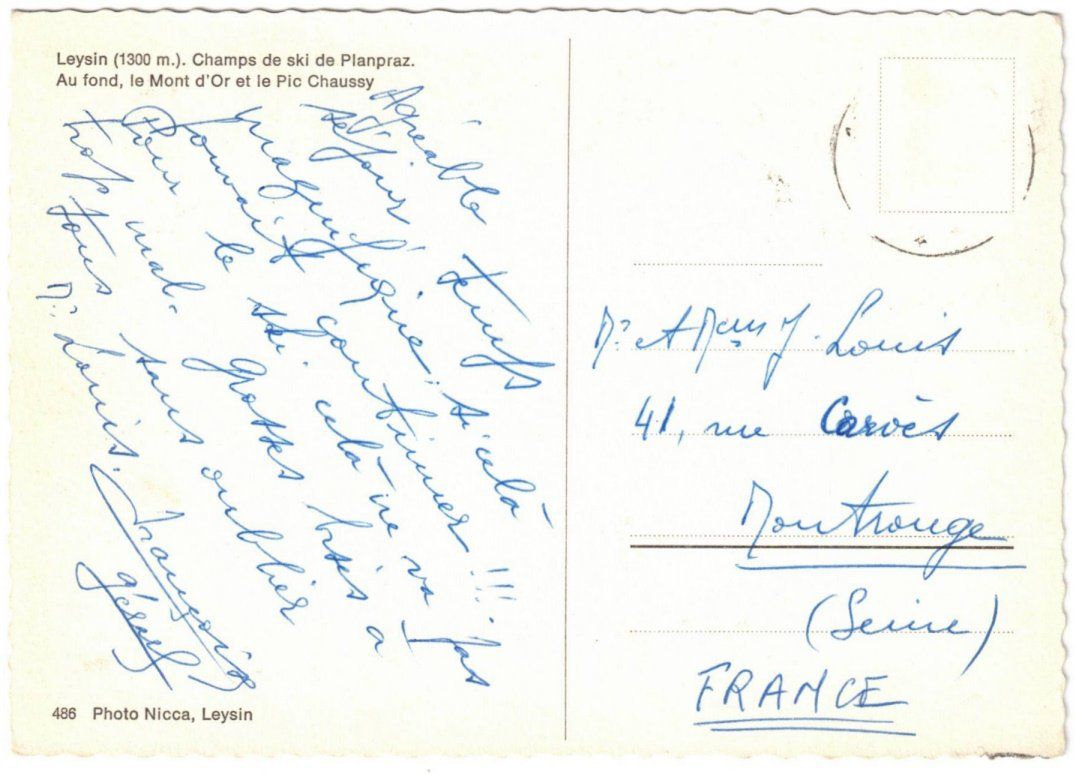 Leysin (1300 m.). Champs de ski de Planpraz.
Au fond, le Mont d'Or et le Pic Chaussy
Agréable
séjour, temps
magnifique; si celà
pouvait continuer !!!
Pour le ski celà ne va pas
trop mal. Grosses bises à
tous sans oublier
Mr Louis.
François
gérard
486 Photo Nicca, Leysin
Mr et Mme J. Louis
41, rue Carvès
Montrouge
(Seine)
FRANCE